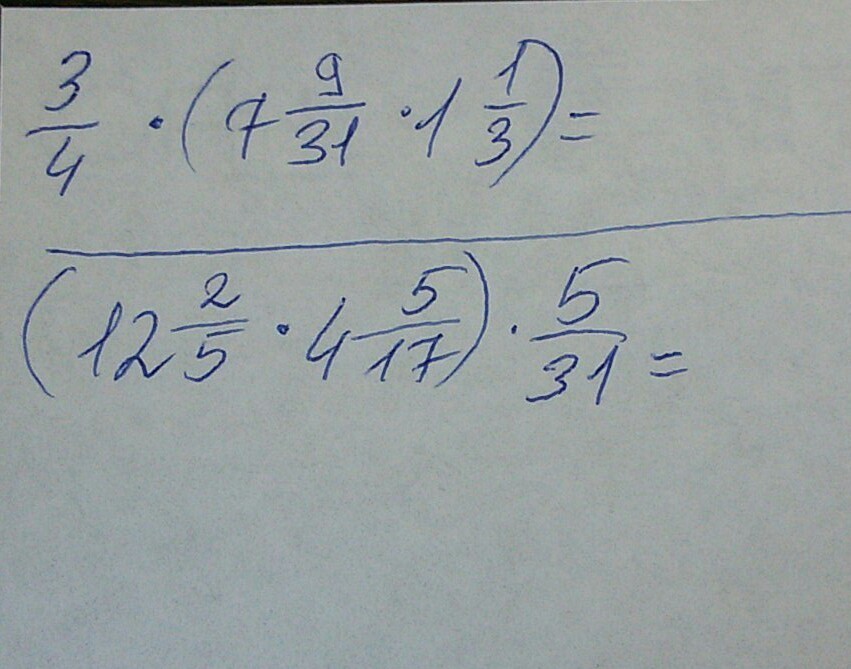 3/4 · (7 9/31 · 1 1/3) =
(12 2/5 · 4 5/17) · 5/31 =